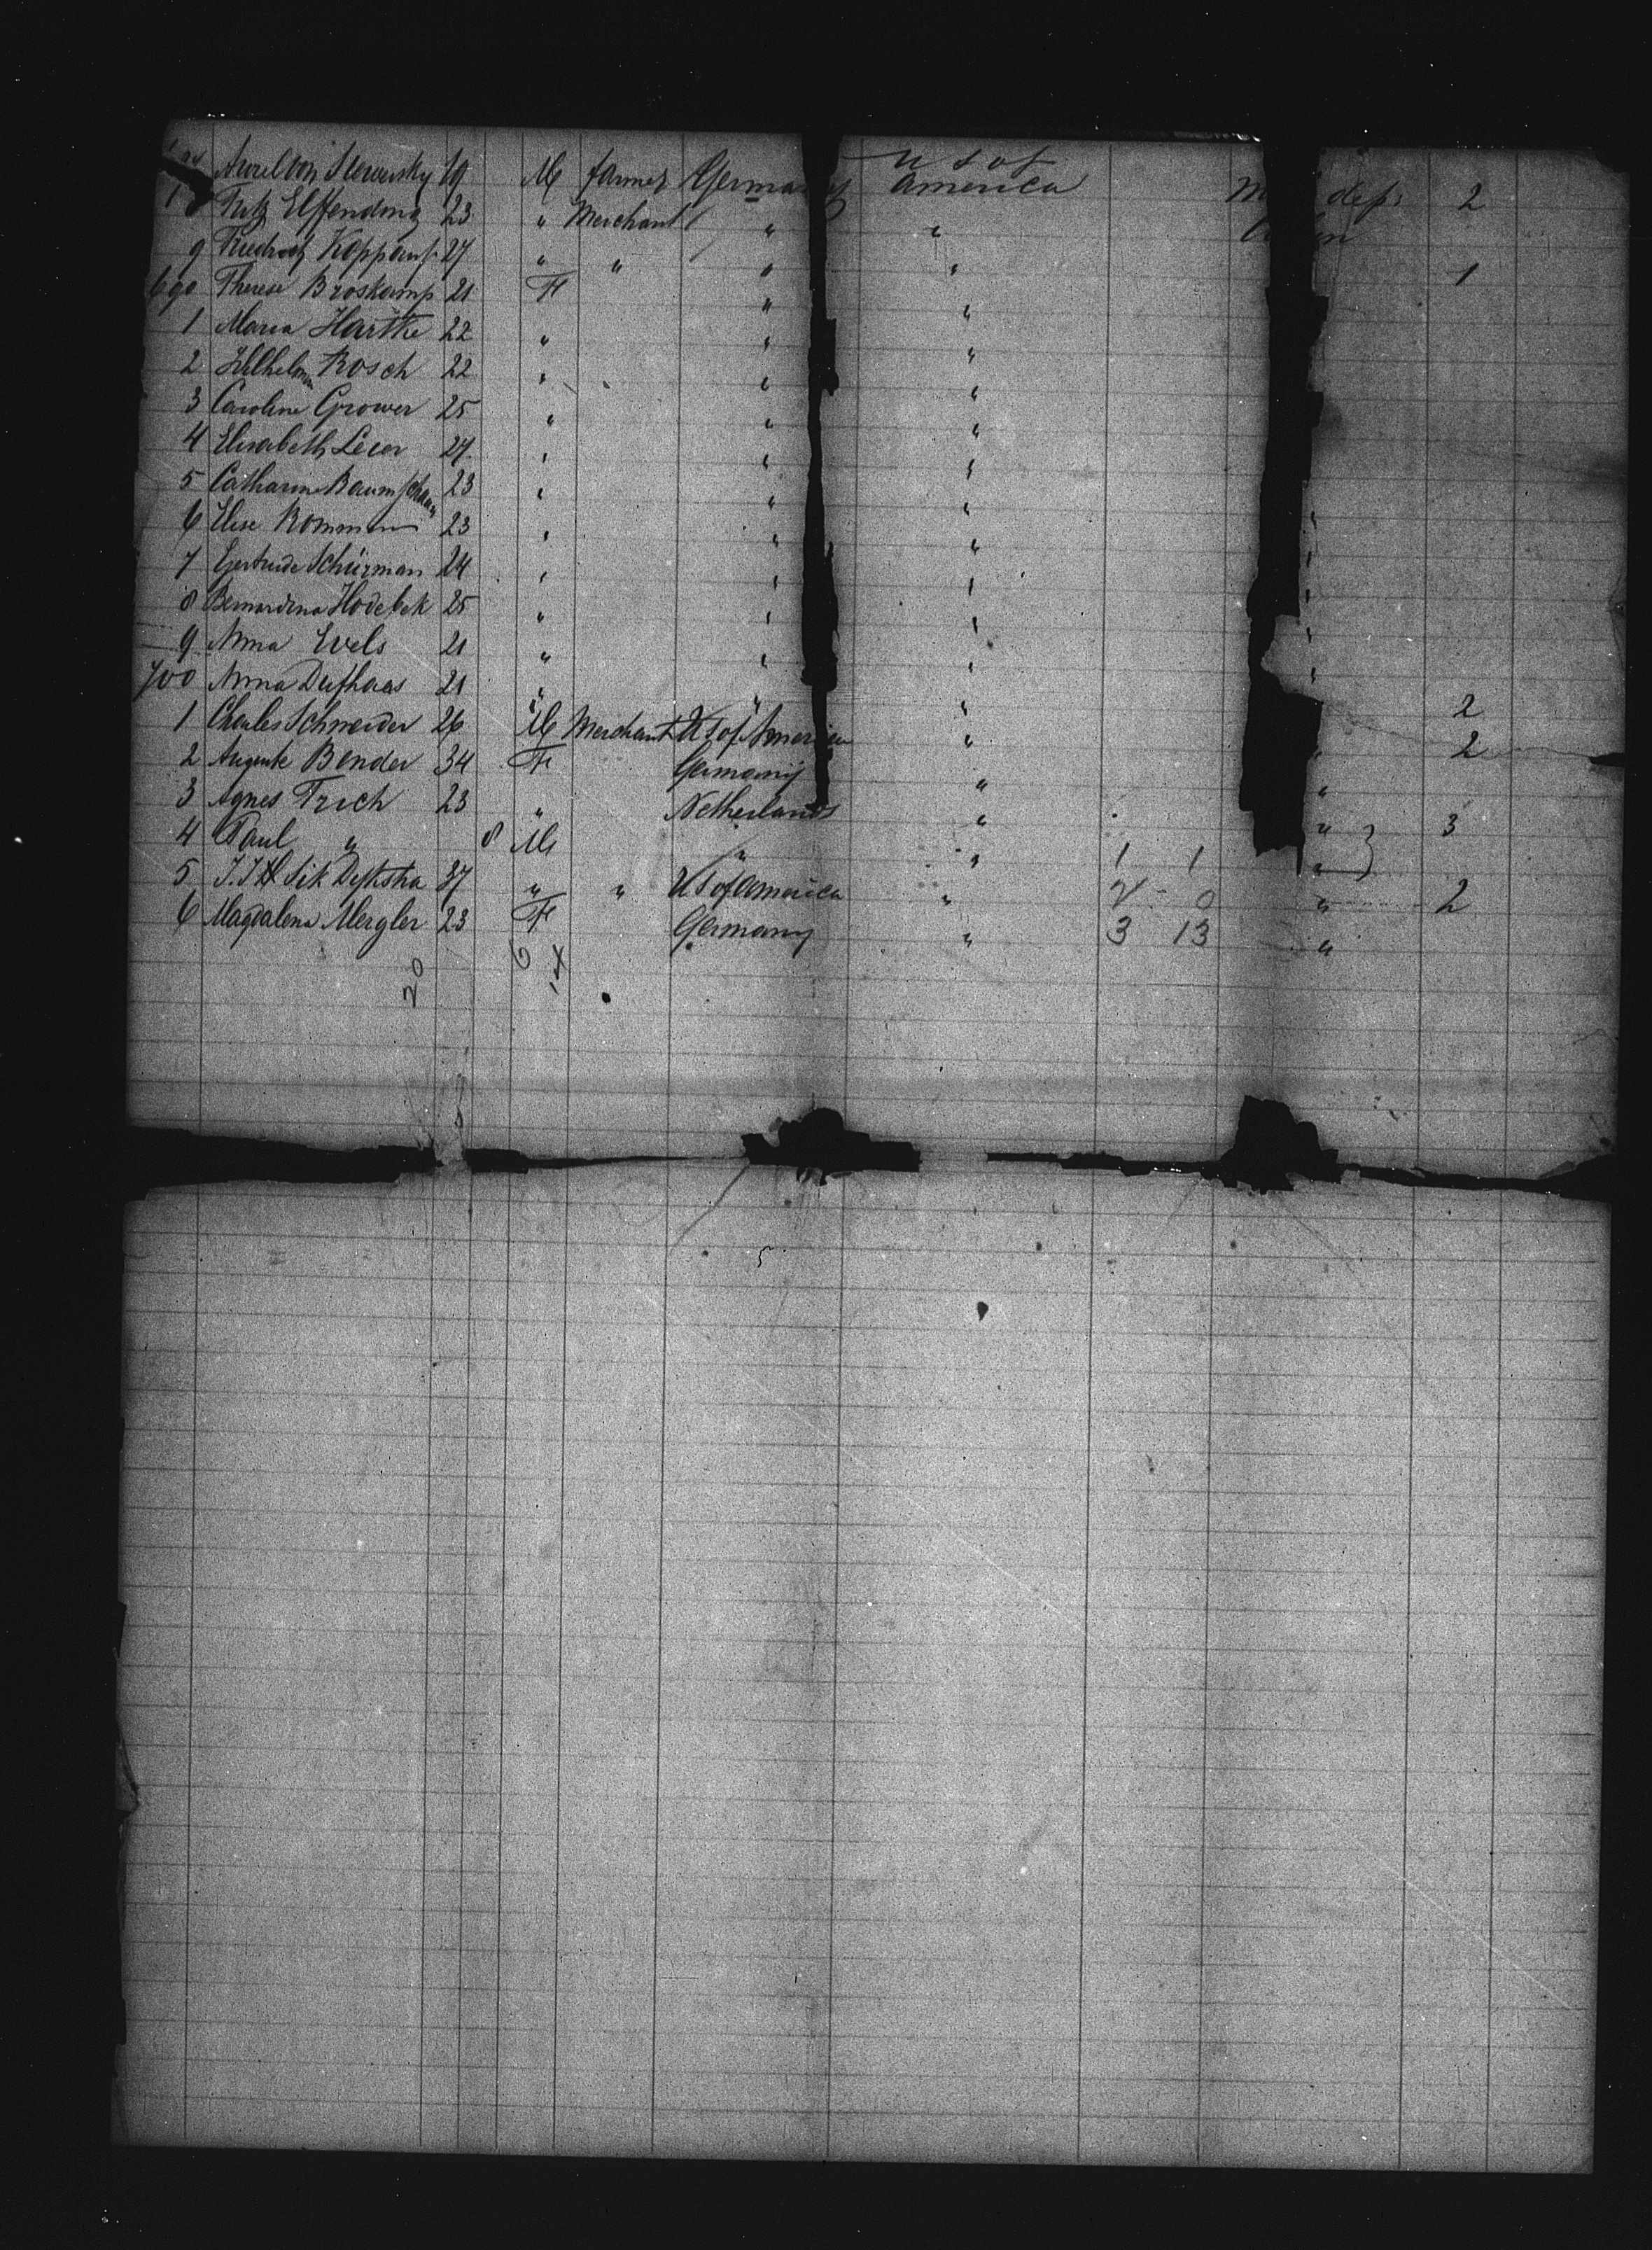 Aurel von Slewersky 19 M farmer Germany U S of America 2
Fritz Elfending 23 " Merchant " "
9 Friedrich Koppanf 27 " " " " 1
690 Therese Broskamp 21 F " "
1 Maria Harthe 22 " " "
2 Wilhelmin Rosch 22 " " "
3 Caroline Grower 25 " " "
4 Elisabeth Leier 27 " " "
5 Catharine Baumschaan 23 " " "
6 Elise Rommen 23 " " " "
7 Gertrude Schürman 24 " " " "
8 Bernardina Hodebek 25 " " " "
9 Anna Evels 21 " " " "
700 Anna Dufhaas 21 " " " "
1 Charles Schneider 26 M Merchant U S of America " " 2
2 Auguste Bender 34 F Germany " " 2
3 Agnes Trich 23 " Netherlands " "
4 Paul " 8 M " " 1 1 " 3
5 J. J H Sik Dyksha 37 " " U S of America " 2 - 0 " 2
6 Magdalena Mergler 23 F Germany " 3 13 "
20 6 14